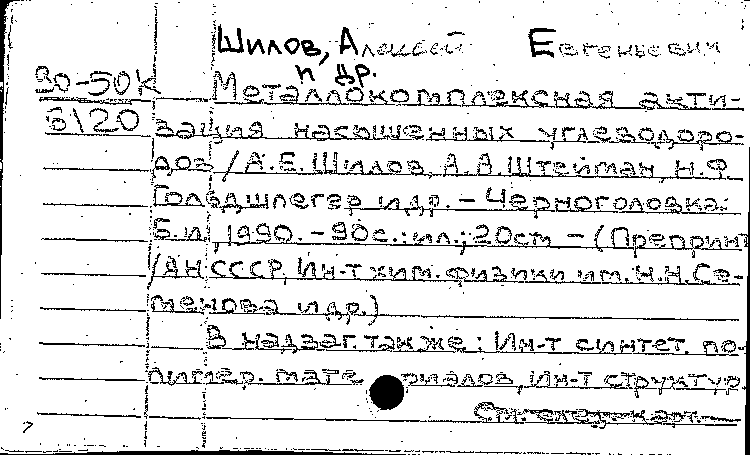 Шилов, Алексей Евгеньевич
и др.
30-50К Металлокомплексная акти-
6120 вация насыщенных углеводоро-
дов / А.Е. Шилов, А.А. Штейман, Н.Ф.
Гольдшлегер и др. - Черноголовка:
Б.и., 1990. - 90 с.: ил.; 20 см - (Препринт
/АН СССР, Ин-т хим. физики им. Н.Н.Се-
менова и др.)
В надзаг. также: Ин-т синтет. по-
лимер. материалов, Ин-т структур.
См. след. карт.